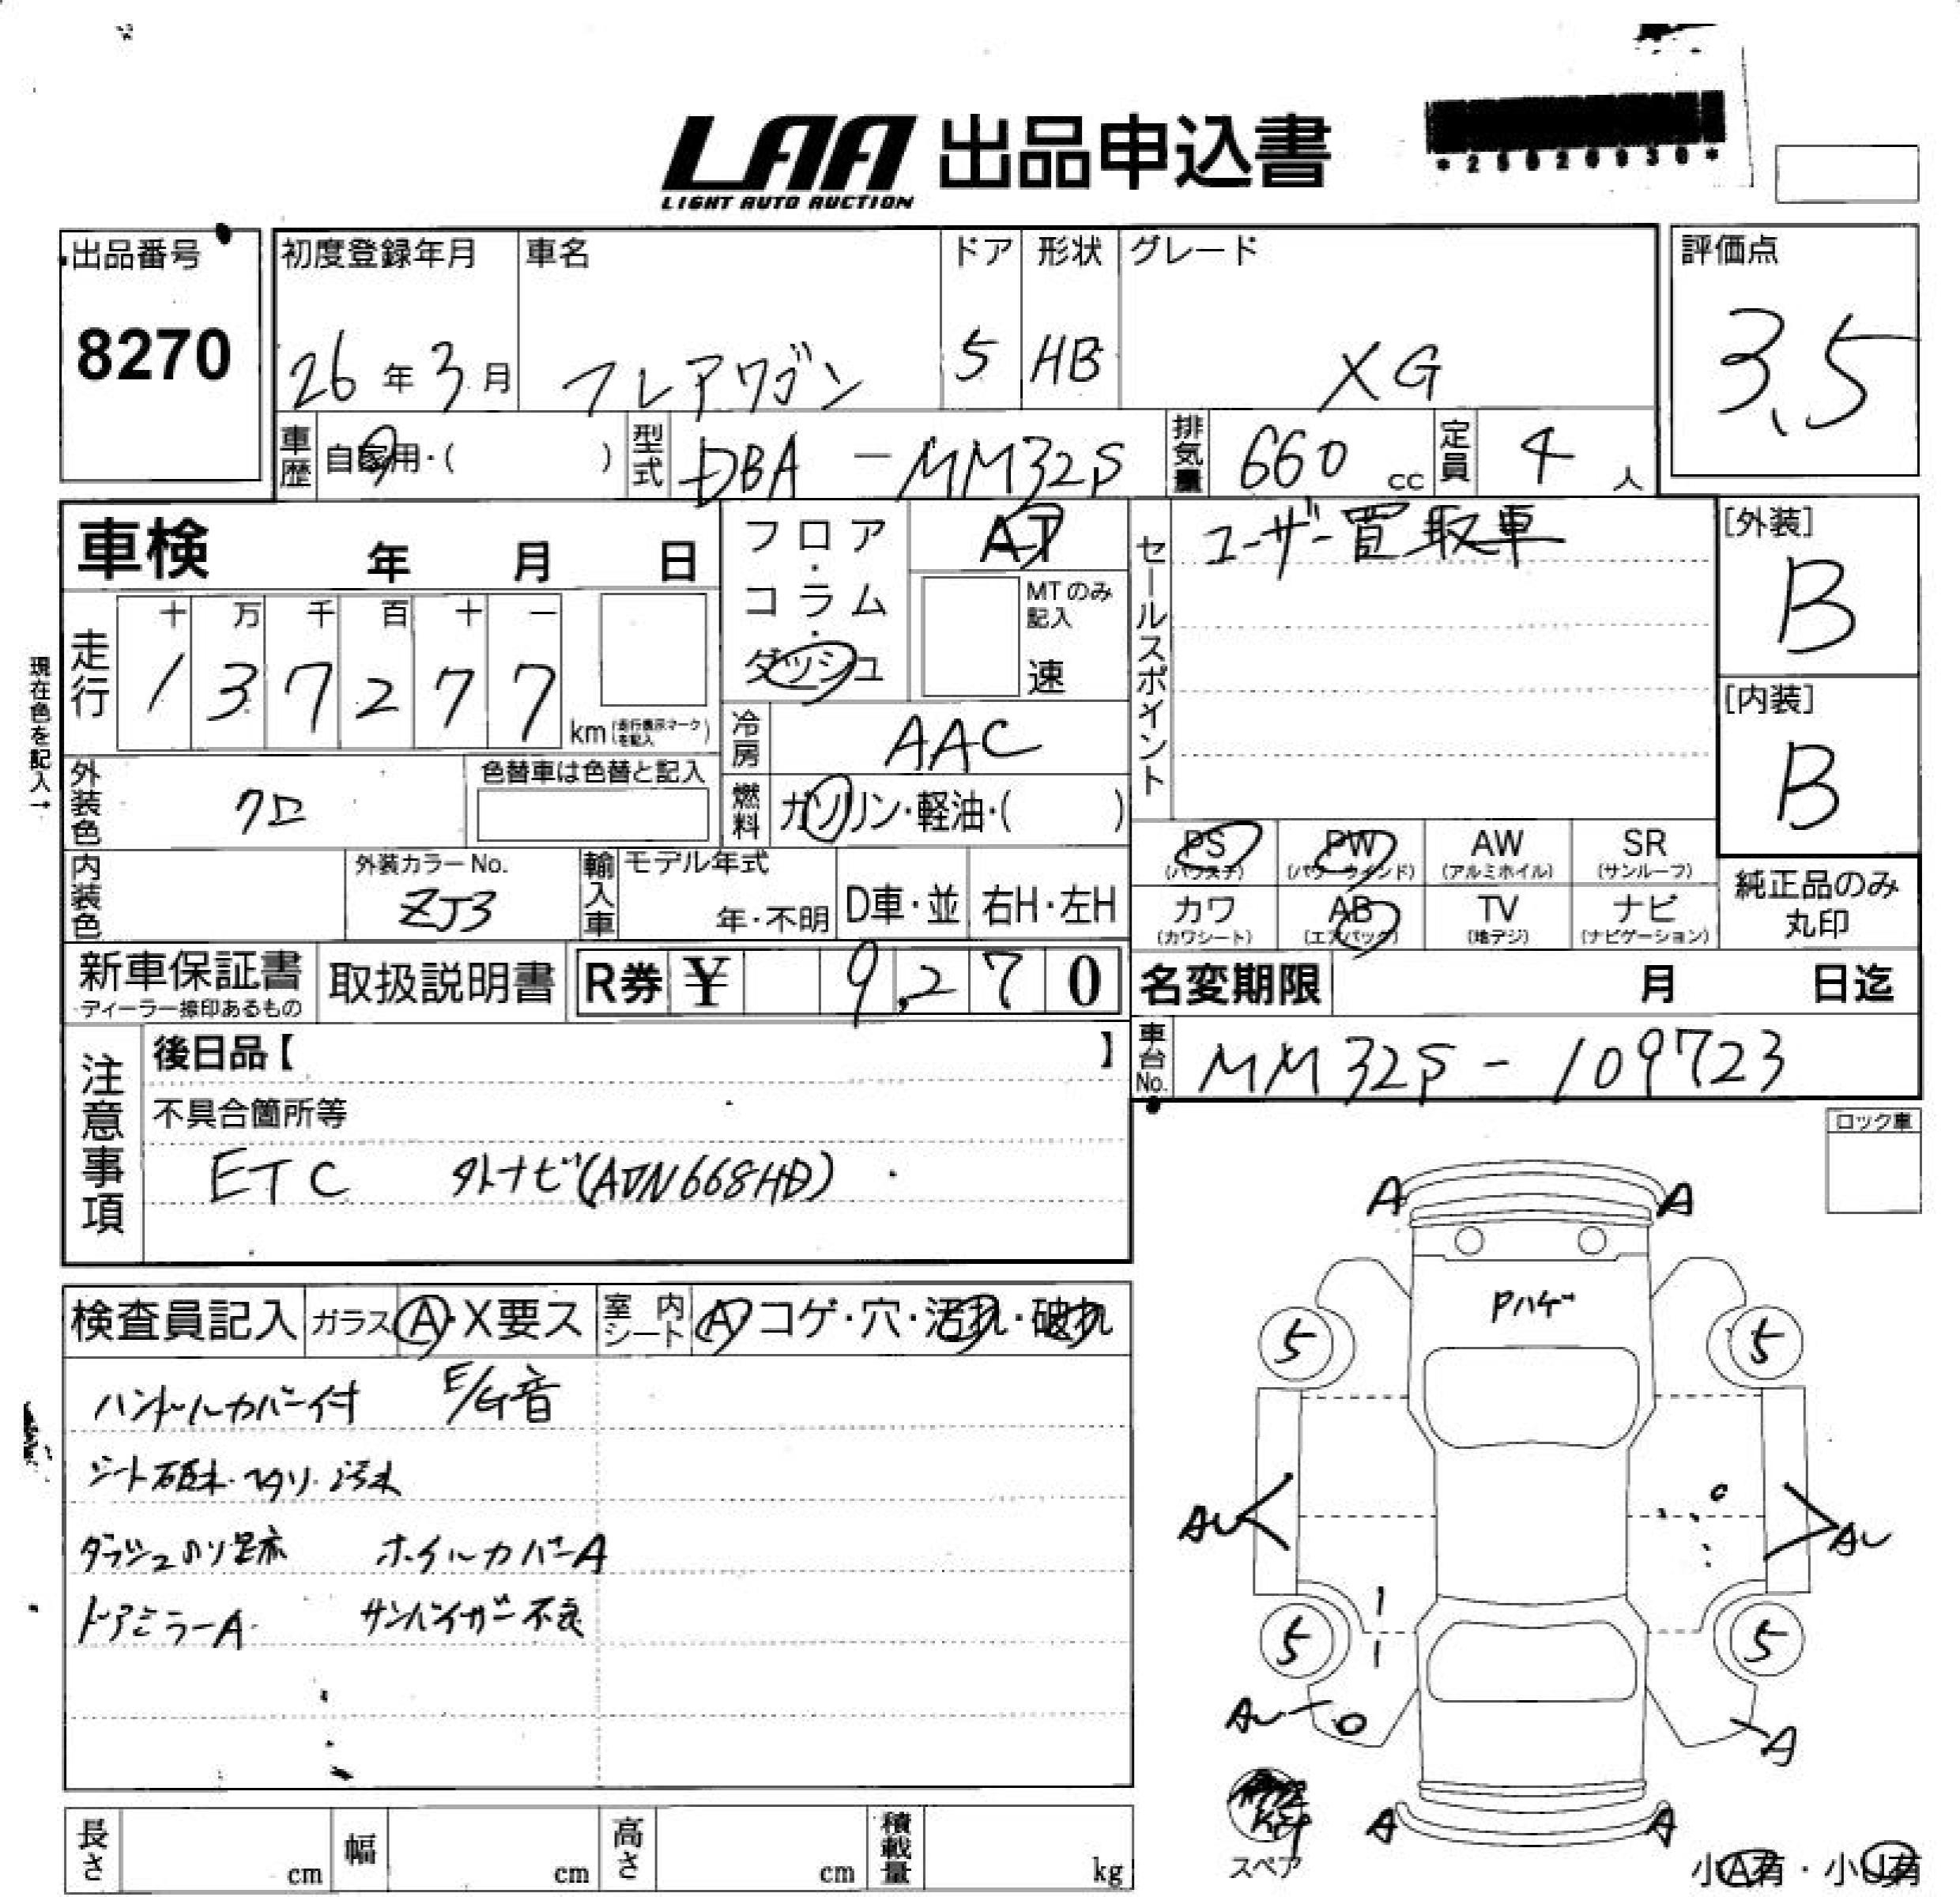 LAA 出品申込書
LIGHT AUTO AUCTION
*25020930*
出品番号 初度登録年月 車名 ドア 形状 グレード 評価点
8270 26年3月 フレアワゴン 5 HB XG 3.5
車歴 自家用・( ) 型式 DBA-MM32S 排気量 660cc 定員 4人
車検 年 月 日 フロア・コラム・ダッシュ AT
MTのみ記入 速
セールスポイント ユーザー買取車
[外装] B
[内装] B
現在色を記入→
走行 十 万 千 百 十 一
1 3 7 2 7 7 km(走行表示マークを記入)
冷房 AAC
外装色 クロ 色替車は色替と記入 燃料 ガソリン・軽油・( )
PS (パワステ) PW (パワーウインド) AW (アルミホイル) SR (サンルーフ)
内装色 外装カラーNo. ZJ3 輸入車 モデル年式 年・不明 D車・並 右H・左H
カワ (カワシート) AB (エアバッグ) TV (地デジ) ナビ (ナビゲーション) 純正品のみ丸印
新車保証書 ディーラー捺印あるもの 取扱説明書 R券 ¥ 9,270 名変期限 月 日迄
車台No. MM32S-109723
注意事項 後日品【 】
不具合箇所等
ETC 外ナビ(AVN668HD)
ロック車
検査員記入 ガラス A・X要ス 室内シート A コゲ・穴・汚れ・破れ
ハンドルカバー付 E/G音
シート破れ・ヘタリ・汚れ
ダッシュのり跡 ホイルカバーA
ドアミラーA サンバイザー不良
A A
Pハゲ
5 5
AU AU
5 5
AU A
A A
スペア
小A有・小U有
長さ cm 幅 cm 高さ cm 積載量 kg